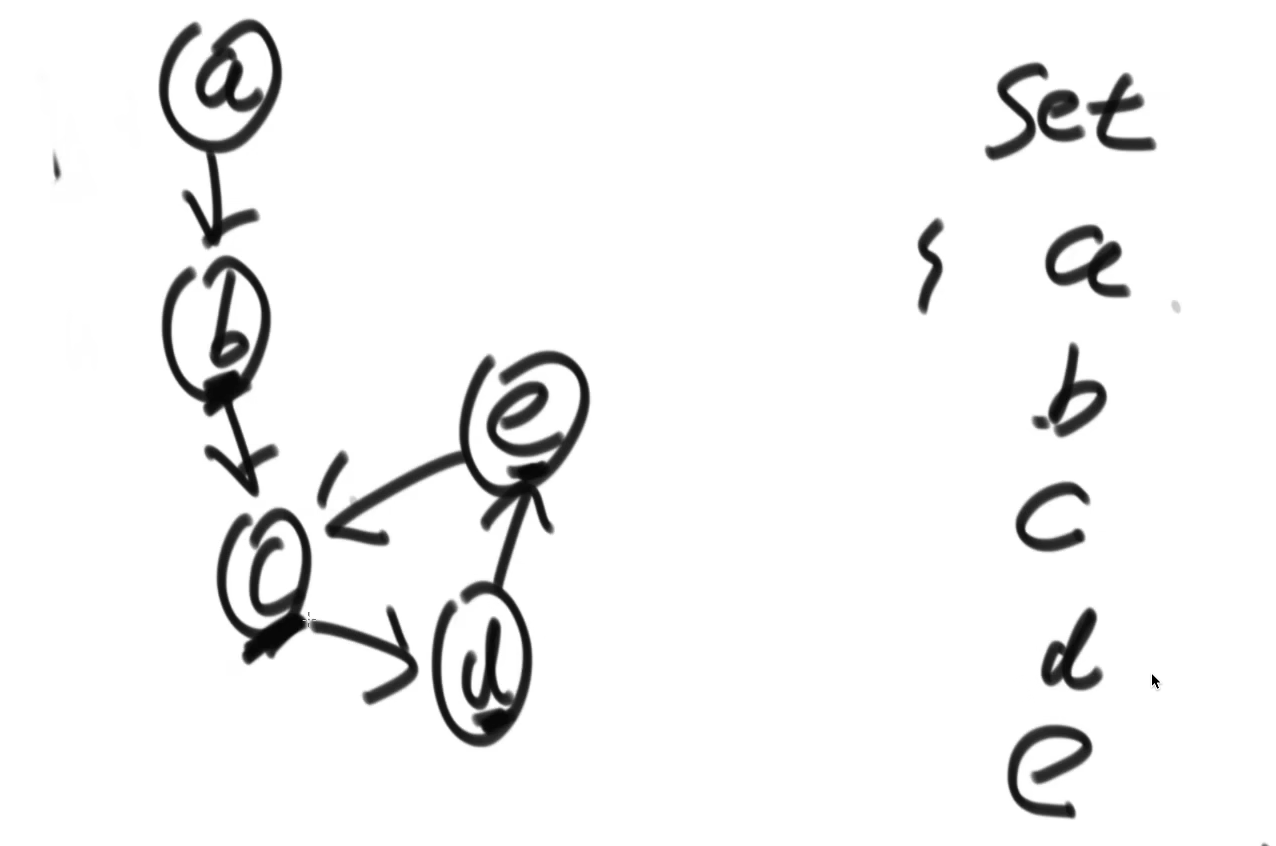 a
b
e
c
d
Set
{ a
b
c
d
e